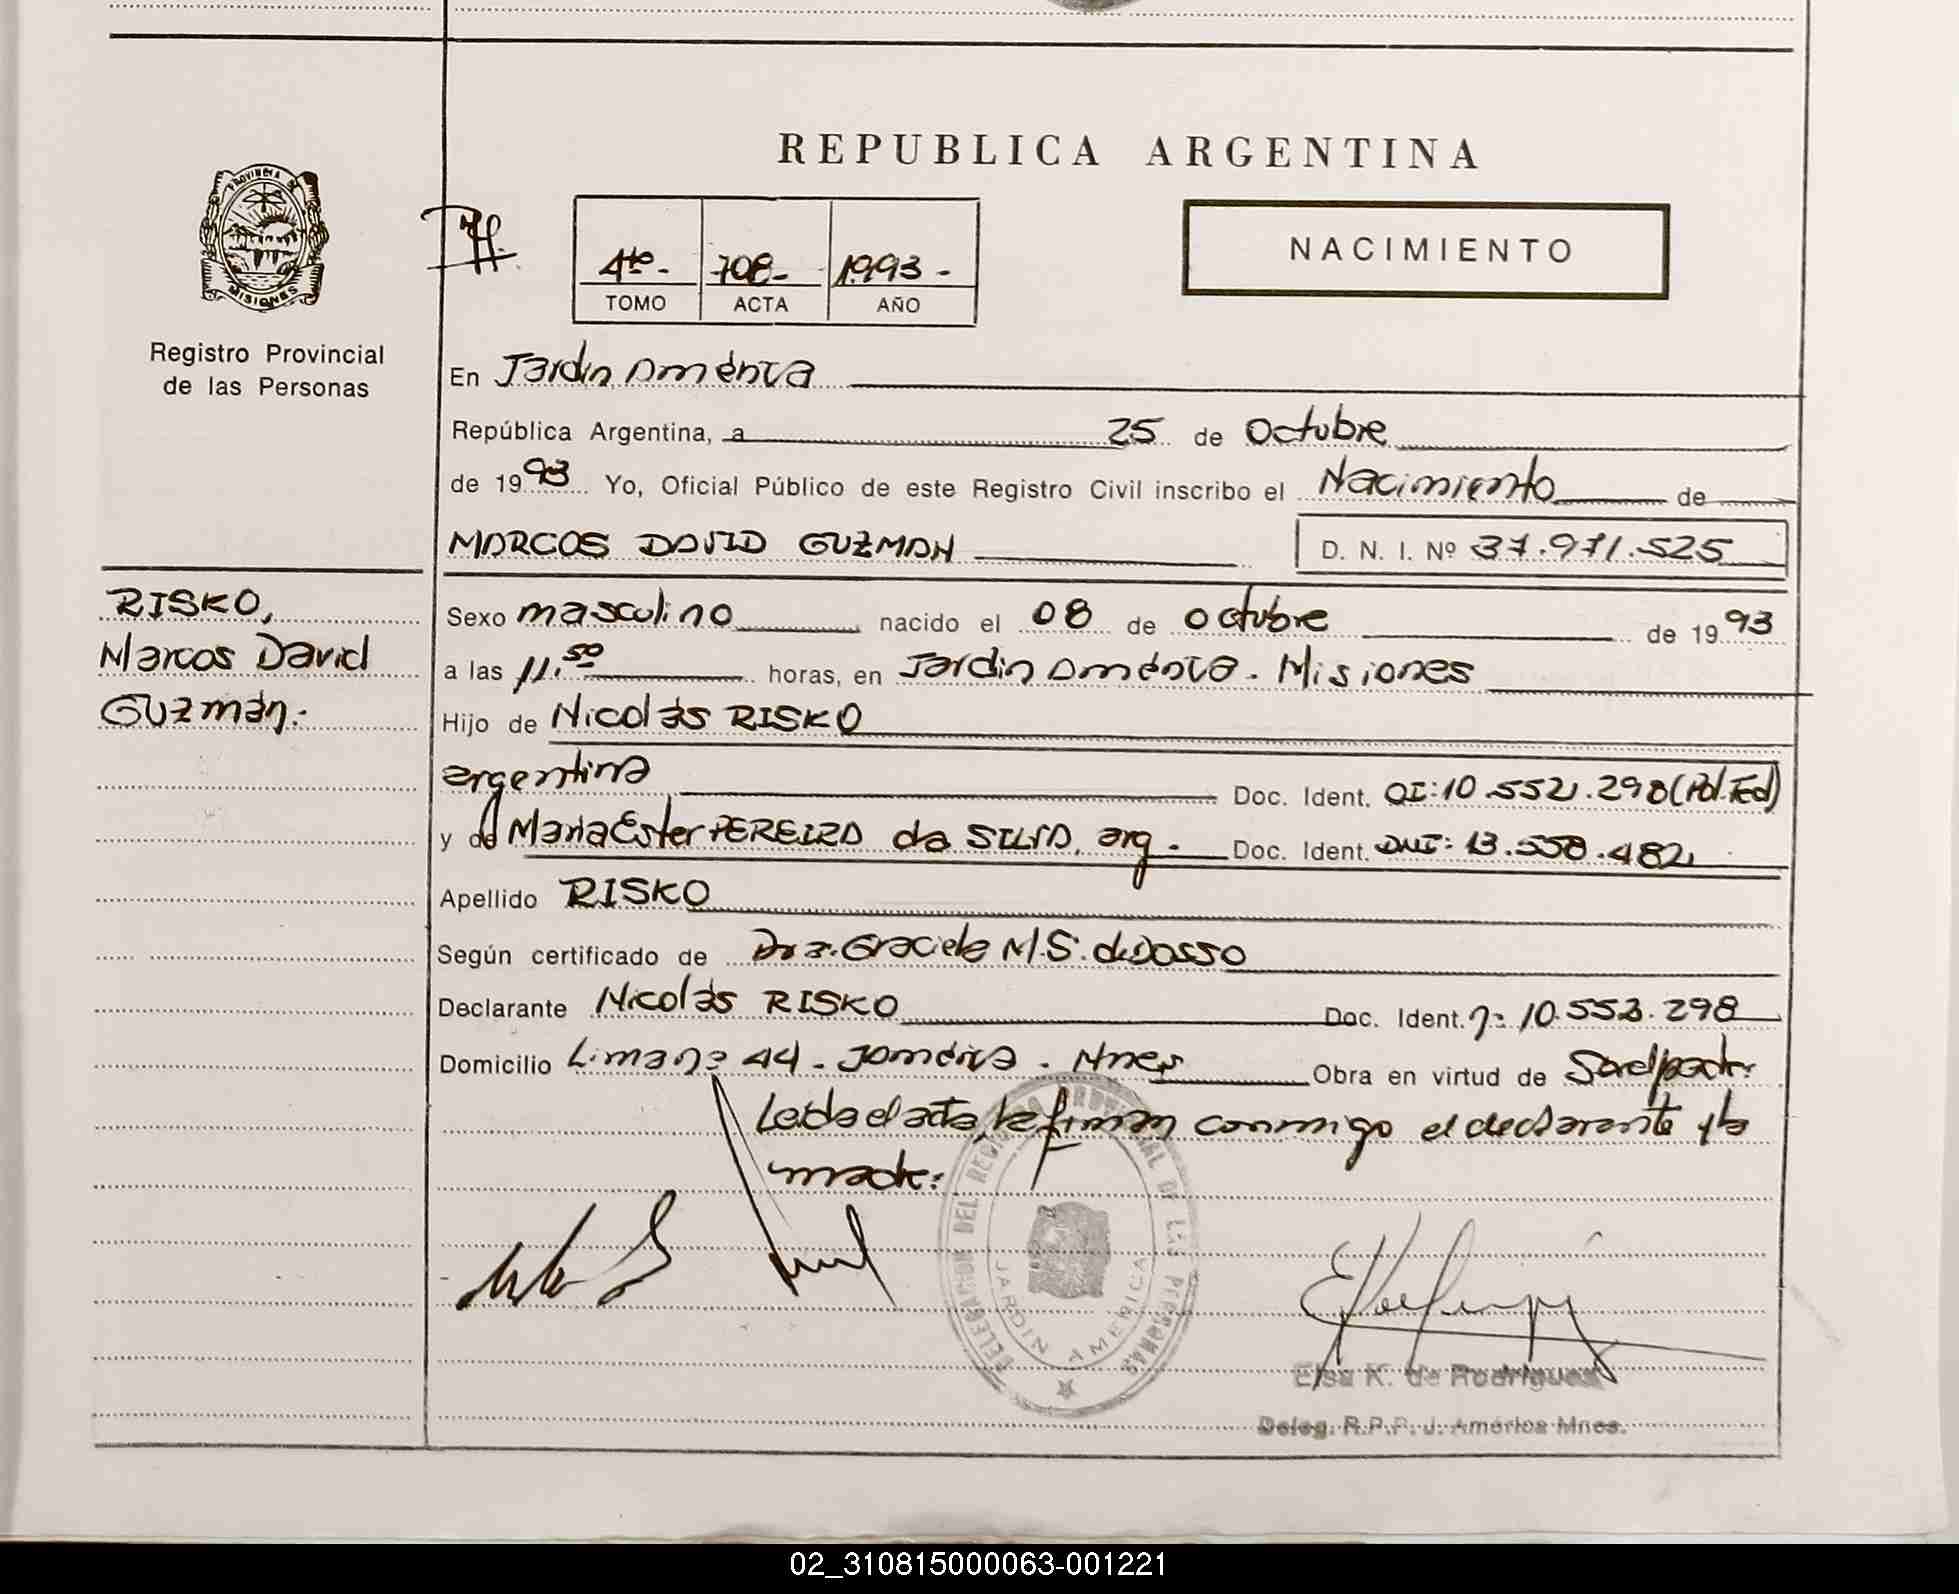 REPUBLICA ARGENTINA
PROVINCIA DE
MISIONES
Registro Provincial
de las Personas
4to.- 708- 1993-
TOMO ACTA AÑO
NACIMIENTO
En Jardín América
República Argentina, a 25 de Octubre
de 1993 Yo, Oficial Público de este Registro Civil inscribo el Nacimiento de
MARCOS DAVID GUZMAN D. N. I. Nº 37.971.525
RISKO,
Marcos David
Guzmán.-
Sexo masculino nacido el 08 de octubre de 1993
a las 11.50 horas, en Jardín América. Misiones
Hijo de Nicolás RISKO
argentina Doc. Ident. CI:10.552.298(Pol.Fed)
y de María Ester PEREIRA da SILVA, arg. Doc. Ident. DNI: 13.558.482
Apellido RISKO
Según certificado de Dra. Graciela M.S. de Dasso
Declarante Nicolás RISKO Doc. Ident. 10.552.298
Domicilio 44 - J América - Mnes Obra en virtud de Ser el padre.
Leída el acta, la firman conmigo el declarante y la
madre.
DELEGACION DEL REGISTRO PROVINCIAL DE LAS PERSONAS
JARDIN AMERICA
Elsa K. de Rodriguez
Deleg. R.P.P. J. América Mnes.
02_310815000063-001221